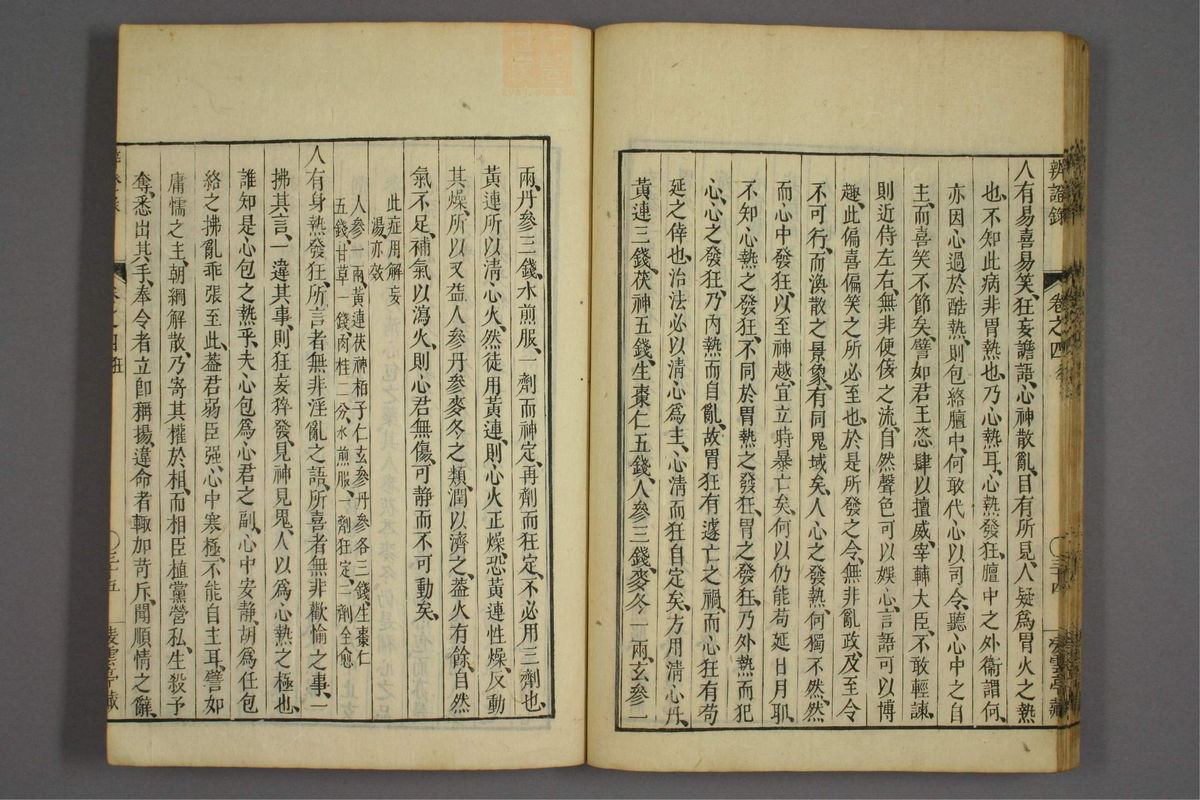 辨證錄
卷之四
人有易喜易笑、狂妄譫語、心神散亂、目有所見、人疑為胃火之熱
也、不知此病非胃熱也、乃心熱耳、心熱發狂、膻中之外衛謂何、
亦因心過於酷熱、則包絡膻中、何敢代心以司令、聽心中之自
主、而喜笑不節矣、譬如君王恣肆以擅威、宰輔大臣、不敢輕諫、
則近侍左右、無非便佞之流、自然聲色可以娛心、言語可以博
趣、此偏喜偏笑之所必至也、於是所發之令、無非亂政、及至令
不可行、而渙散之景象、有同鬼域矣、人心之發熱、何獨不然、然
而心中發狂、以至神越、宜立時暴亡矣、何以仍能苟延日月耶、
不知心熱之發狂、不同於胃熱之發狂、胃之發狂、乃外熱而犯
心、心之發狂、乃內熱而自亂、故胃狂有遽亡之禍、而心狂有苟
延之倖也、治法必以清心為主、心清而狂自定矣、方用清心丹、
黃連三錢、茯神五錢、生棗仁五錢、人參三錢、麥冬一兩、玄參一
兩、丹參三錢、水煎服、一劑而神定、再劑而狂定、不必用三劑也、
黃連所以清心火、然徒用黃連、則心火正燥、恐黃連性燥、反動
其燥、所以又益人參丹參麥冬之類、潤以濟之、蓋火有餘、自然
氣不足、補氣以瀉火、則心君無傷、可靜而不可動矣、
此症用解妄
湯亦效
人參一兩、黃連茯神柏子仁玄參丹參各三錢、生棗仁
五錢、甘草一錢、肉桂二分、水煎服、一劑狂定、二劑全愈
人有身熱發狂、所言者無非淫亂之語、所喜者無非歡愉之事、一
拂其言、一違其事、則狂妄猝發、見神見鬼、人以為心熱之極也、
誰知是心包之熱乎、夫心包為心君之副、心中安靜、胡為任包
絡之拂亂乖張至此、蓋君弱臣强、心中寒極、不能自主耳、譬如
庸懦之主、朝綱解散、乃寄其權於相、而相臣植黨營私、生殺予
奪、悉出其手、奉令者立卽稱揚、違命者輒加苛斥、聞順情之辭、